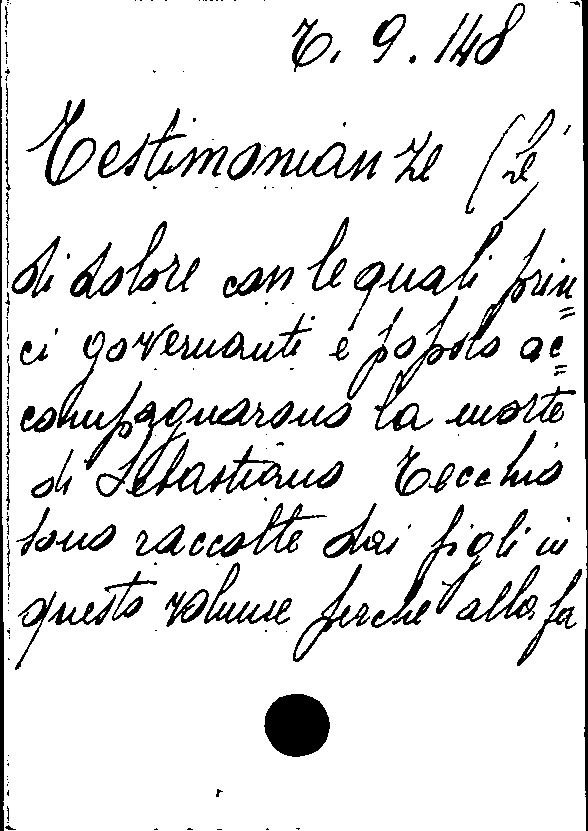 T. 9. 148
Testimonianze (Le)
di dolore con le quali prin=
ci governanti e popolo ac=
compagnarono la morte
di Sebastiano Tecchio
sono raccolte dai figli in
questo volume perchè alla fa